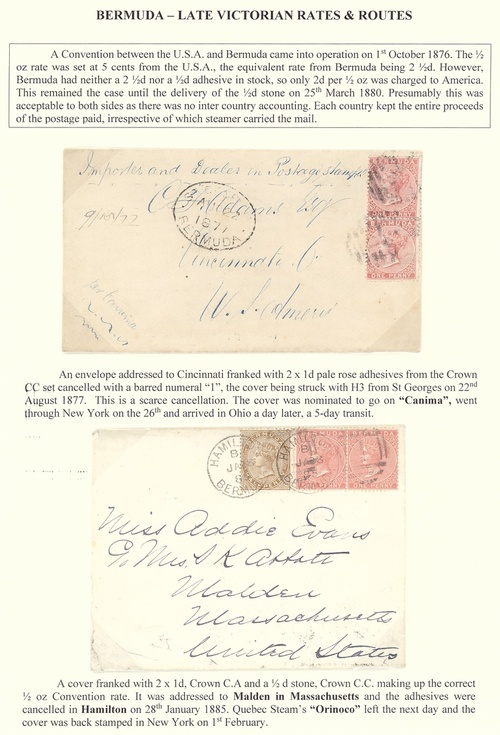 BERMUDA – LATE VICTORIAN RATES & ROUTES
A Convention between the U.S.A. and Bermuda came into operation on 1st October 1876. The ½
oz rate was set at 5 cents from the U.S.A., the equivalent rate from Bermuda being 2 ½d. However,
Bermuda had neither a 2 ½d nor a ½d adhesive in stock, so only 2d per ½ oz was charged to America.
This remained the case until the delivery of the ½d stone on 25th March 1880. Presumably this was
acceptable to both sides as there was no inter country accounting. Each country kept the entire proceeds
of the postage paid, irrespective of which steamer carried the mail.
Importer and Dealer in Postage stamps
Esq
9/10/77
1877
BERMUDA
Cincinnati O.
ONE PENNY
An envelope addressed to Cincinnati franked with 2 x 1d pale rose adhesives from the Crown
CC set cancelled with a barred numeral “1”, the cover being struck with H3 from St Georges on 22nd
August 1877. This is a scarce cancellation. The cover was nominated to go on “Canima”, went
through New York on the 26th and arrived in Ohio a day later, a 5-day transit.
HAMIL
BERM
ONE PENNY
Miss Addie Evans
Mrs. S K Abbott
Malden
Massachusetts
United States
A cover franked with 2 x 1d, Crown C.A and a ½ d stone, Crown C.C. making up the correct
½ oz Convention rate. It was addressed to Malden in Massachusetts and the adhesives were
cancelled in Hamilton on 28th January 1885. Quebec Steam’s “Orinoco” left the next day and the
cover was back stamped in New York on 1st February.